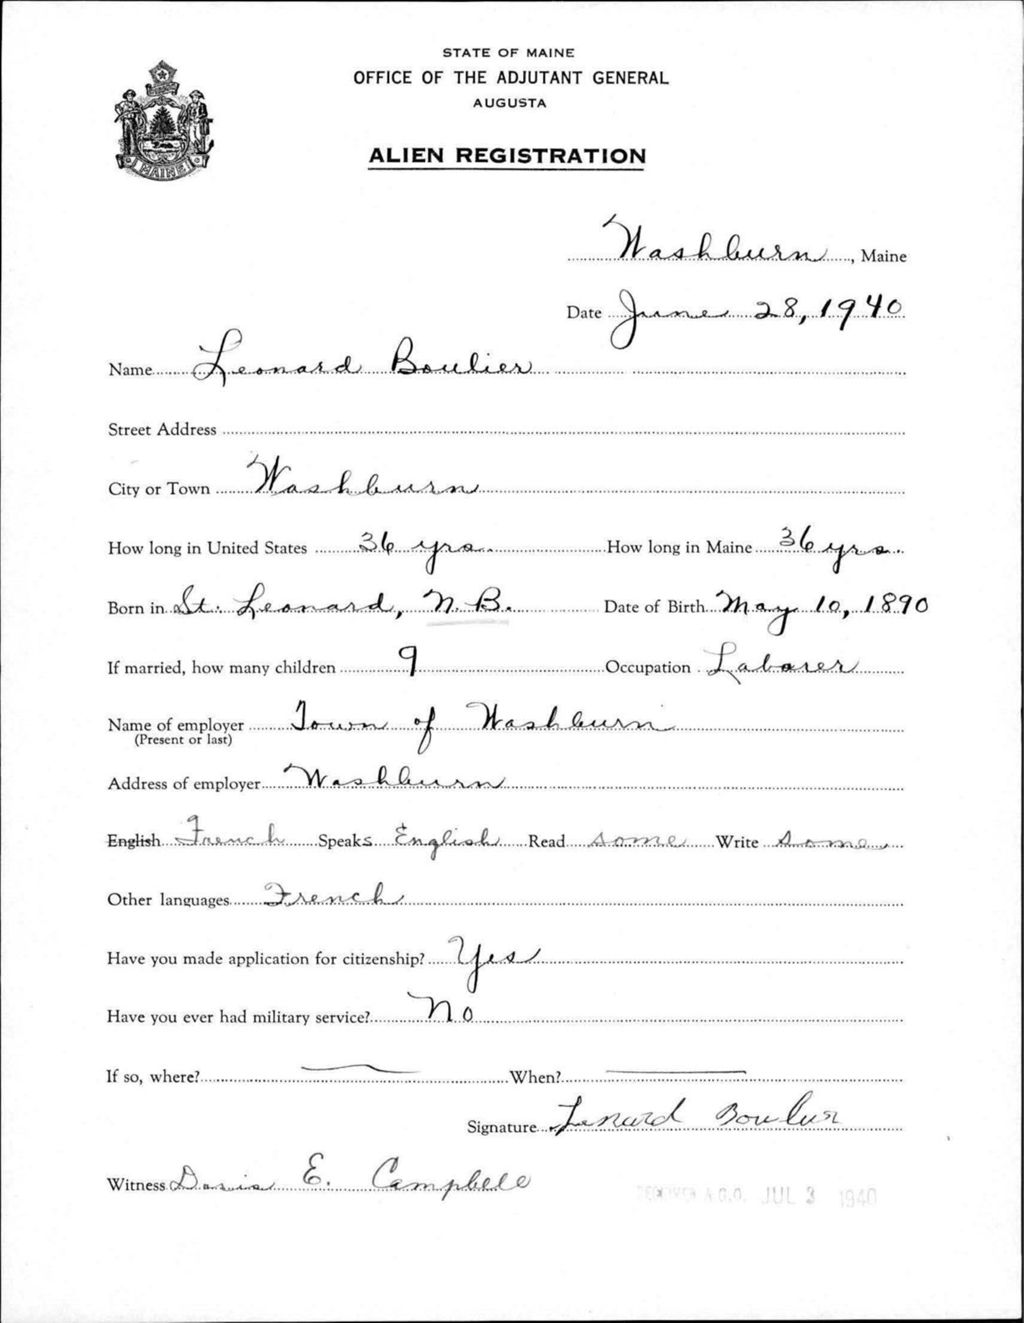 STATE OF MAINE
OFFICE OF THE ADJUTANT GENERAL
AUGUSTA
ALIEN REGISTRATION
MAINE
Washburn, Maine
Date June 28, 1940
Name Leonard Boulier
Street Address
City or Town Washburn
How long in United States 36 yrs. How long in Maine 36 yrs.
Born in St. Leonard, N.B. Date of Birth May 10, 1890
If married, how many children 9 Occupation Laborer
Name of employer Town of Washburn
(Present or last)
Address of employer Washburn
English French Speaks English Read some Write some
Other languages French
Have you made application for citizenship? Yes
Have you ever had military service? No
If so, where? When?
Signature Lenard Boulier
Witness Doris E. Campbell
A.G.O. JUL 3 1940